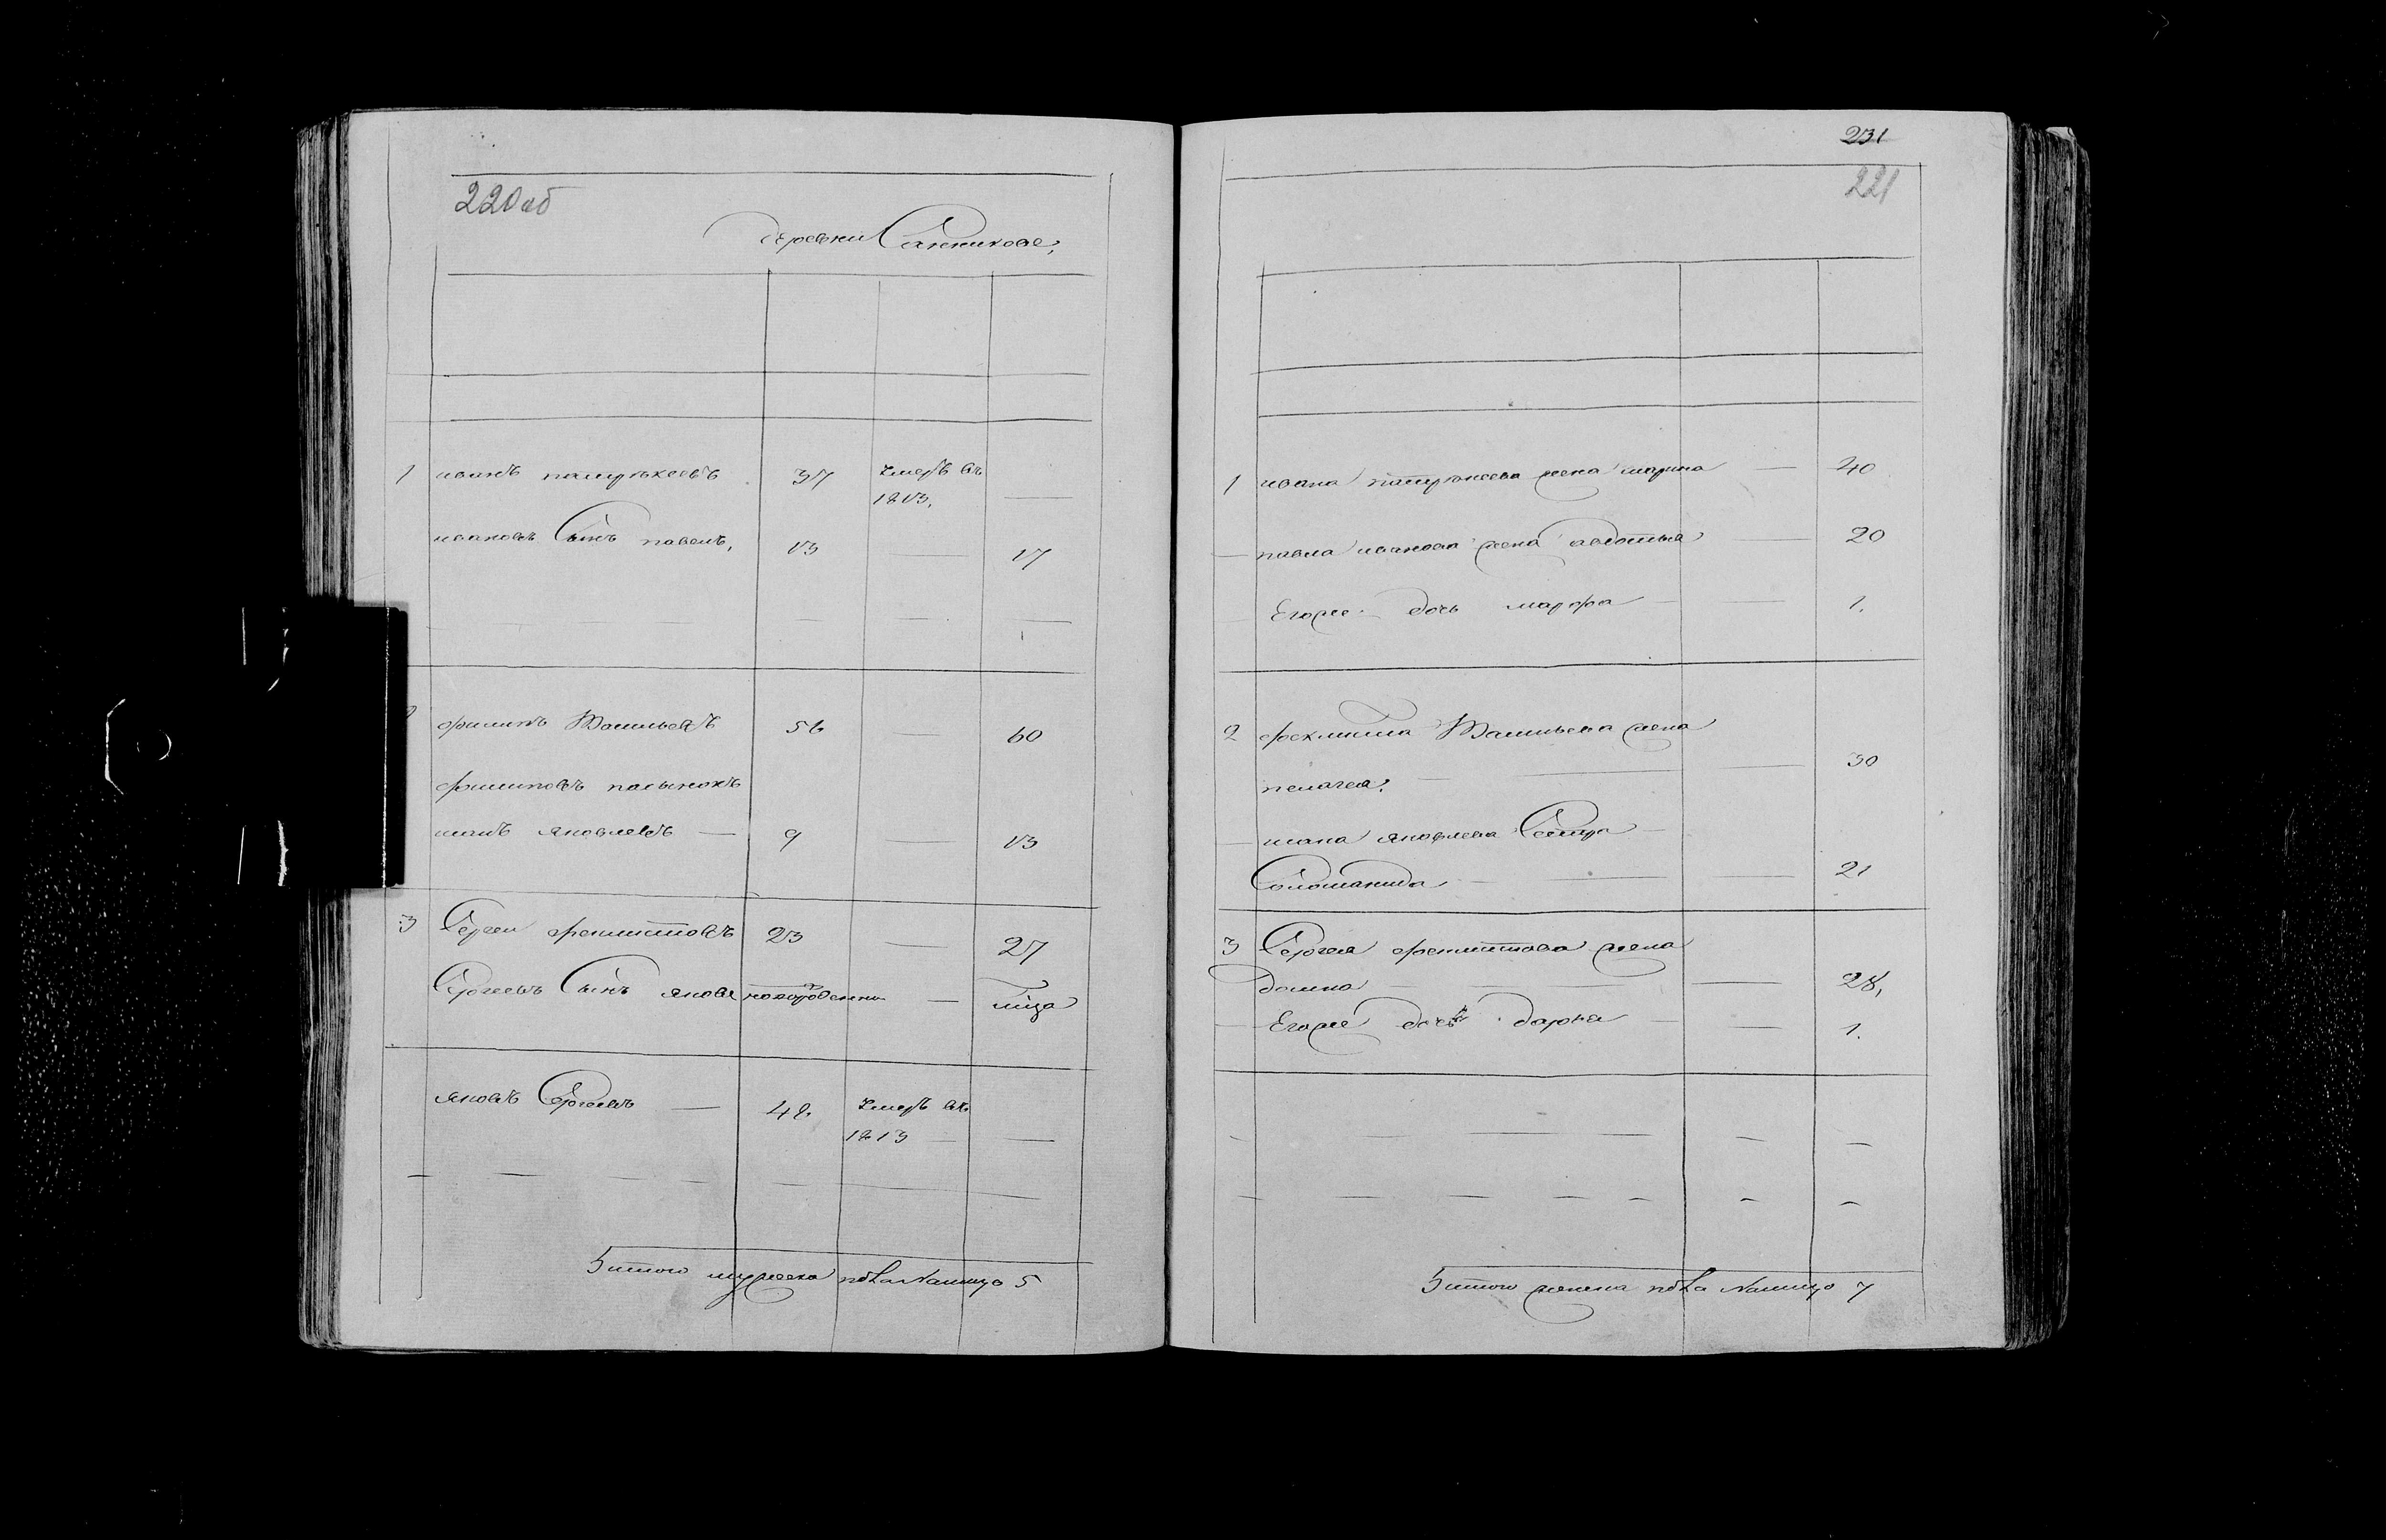 220 об
деревни Санникове,
1 иванъ патрѣкеевъ 37 умеръ въ —
1813,
ивановъ Сынъ павелъ, 13 — 17
филипъ Васильевъ 56 — 60
филиповъ пасынокъ
яковлевъ — 9 — 13
3 Сергеи 23 — 27
Сергеевъ Сынъ яковъ новорожденны —
яковъ Сергеевъ — 48 умеръ въ
1813 — —
Итого мужеска пола Налицо 5
231
221
1 ивана патрѣкеева жена марина — 40
— павла иванова жена авдотья — 20
Егоже дочь марфа — — 1.
2 Васильева жена
пелагея, — — — 30
яковлева Сестра —
Соломанида — — — 21
3 Сергея жена
домна — — — 28,
— Егоже дочь дарья — — 1.
Итого женска пола Налицо 7